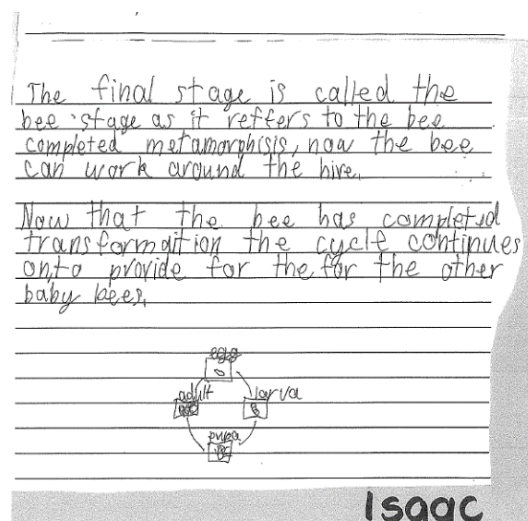 The final stage is called the
bee stage as it reffers to the bee
completed metamorphisis, now the bee
can work around the hive.
Now that the bee has completed
transformaition the cycle continues
onto provide for the for the other
baby bees.
egg
adult
larva
pupa
Isaac